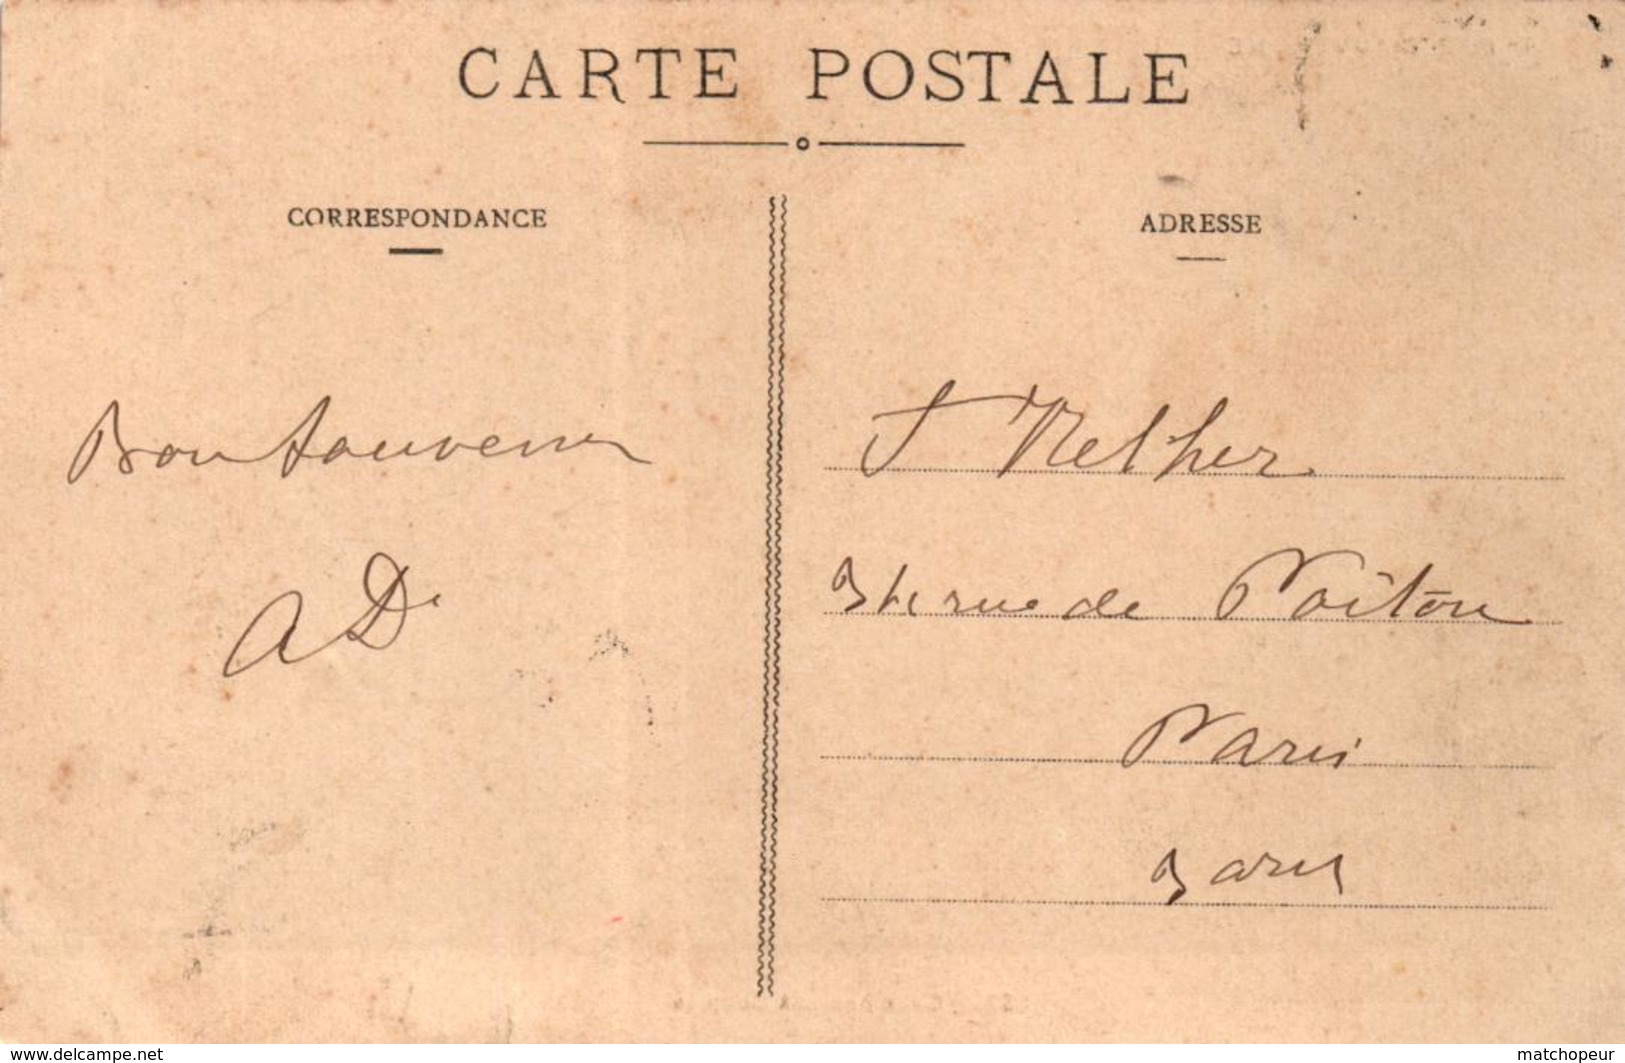 CARTE POSTALE
CORRESPONDANCE
ADRESSE
Bon Souvenir
AD
rue de Poitou
Paris
www.delcampe.net
matchopeur